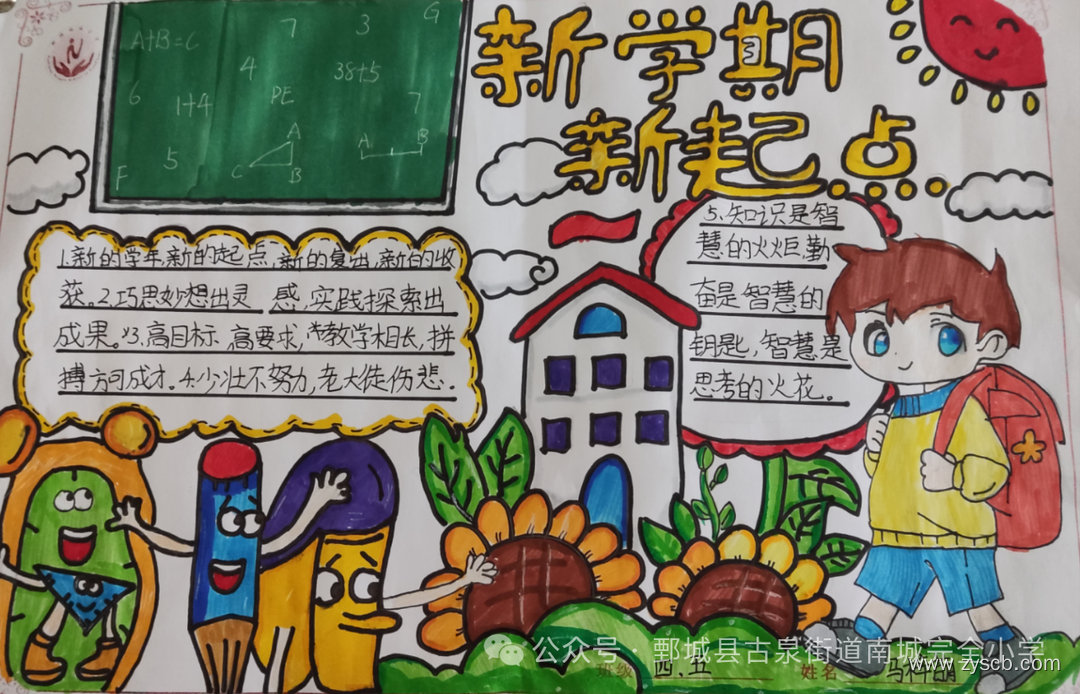 A+B=C
7
3
G
4
38+5
6
1+4
PE
7
5
F
A
C
B
A
B
新学期
新起点
1.新的学年,新的起点,新的复出,新的收
获。2.巧思妙想出灵 感,实践探索出
成果。3.高目标 高要求,教学相长,拼
搏方可成才。4.少壮不努力,老大徒伤悲.
5.知识是智
慧的火炬,勤
奋是智慧的
钥匙,智慧是
思考的火花。
公众号·鄄城县古泉街道南城完全小学
班级 四.五 姓名 马梓
www.zyscb.com